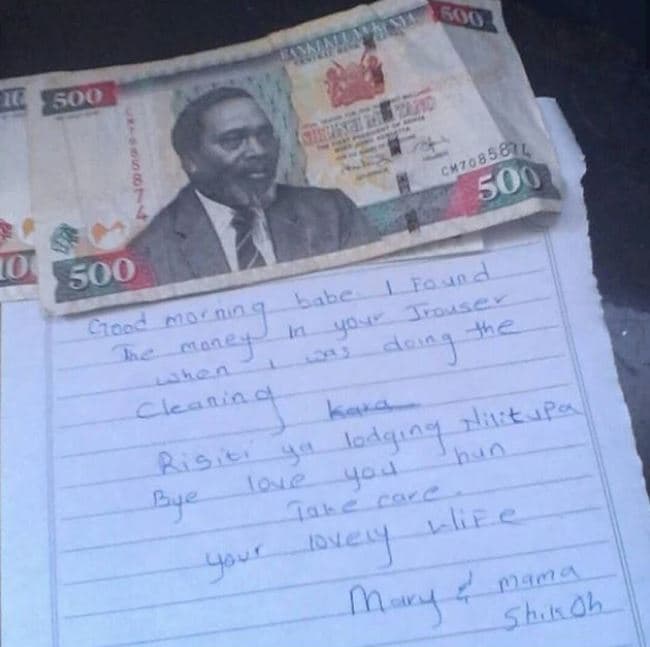 BANKI KUU YA KENYA
500
10
500
CM7085874
SHILINGI MIA TANO
CM7085874
500
10
500
Good morning babe. I Found
The money in your Trouser
when I was doing the
Cleaning kara
Risiti ya lodging Nilitupa
Bye love you hun
Take care.
your lovely wife
Mary & mama
Shikoh